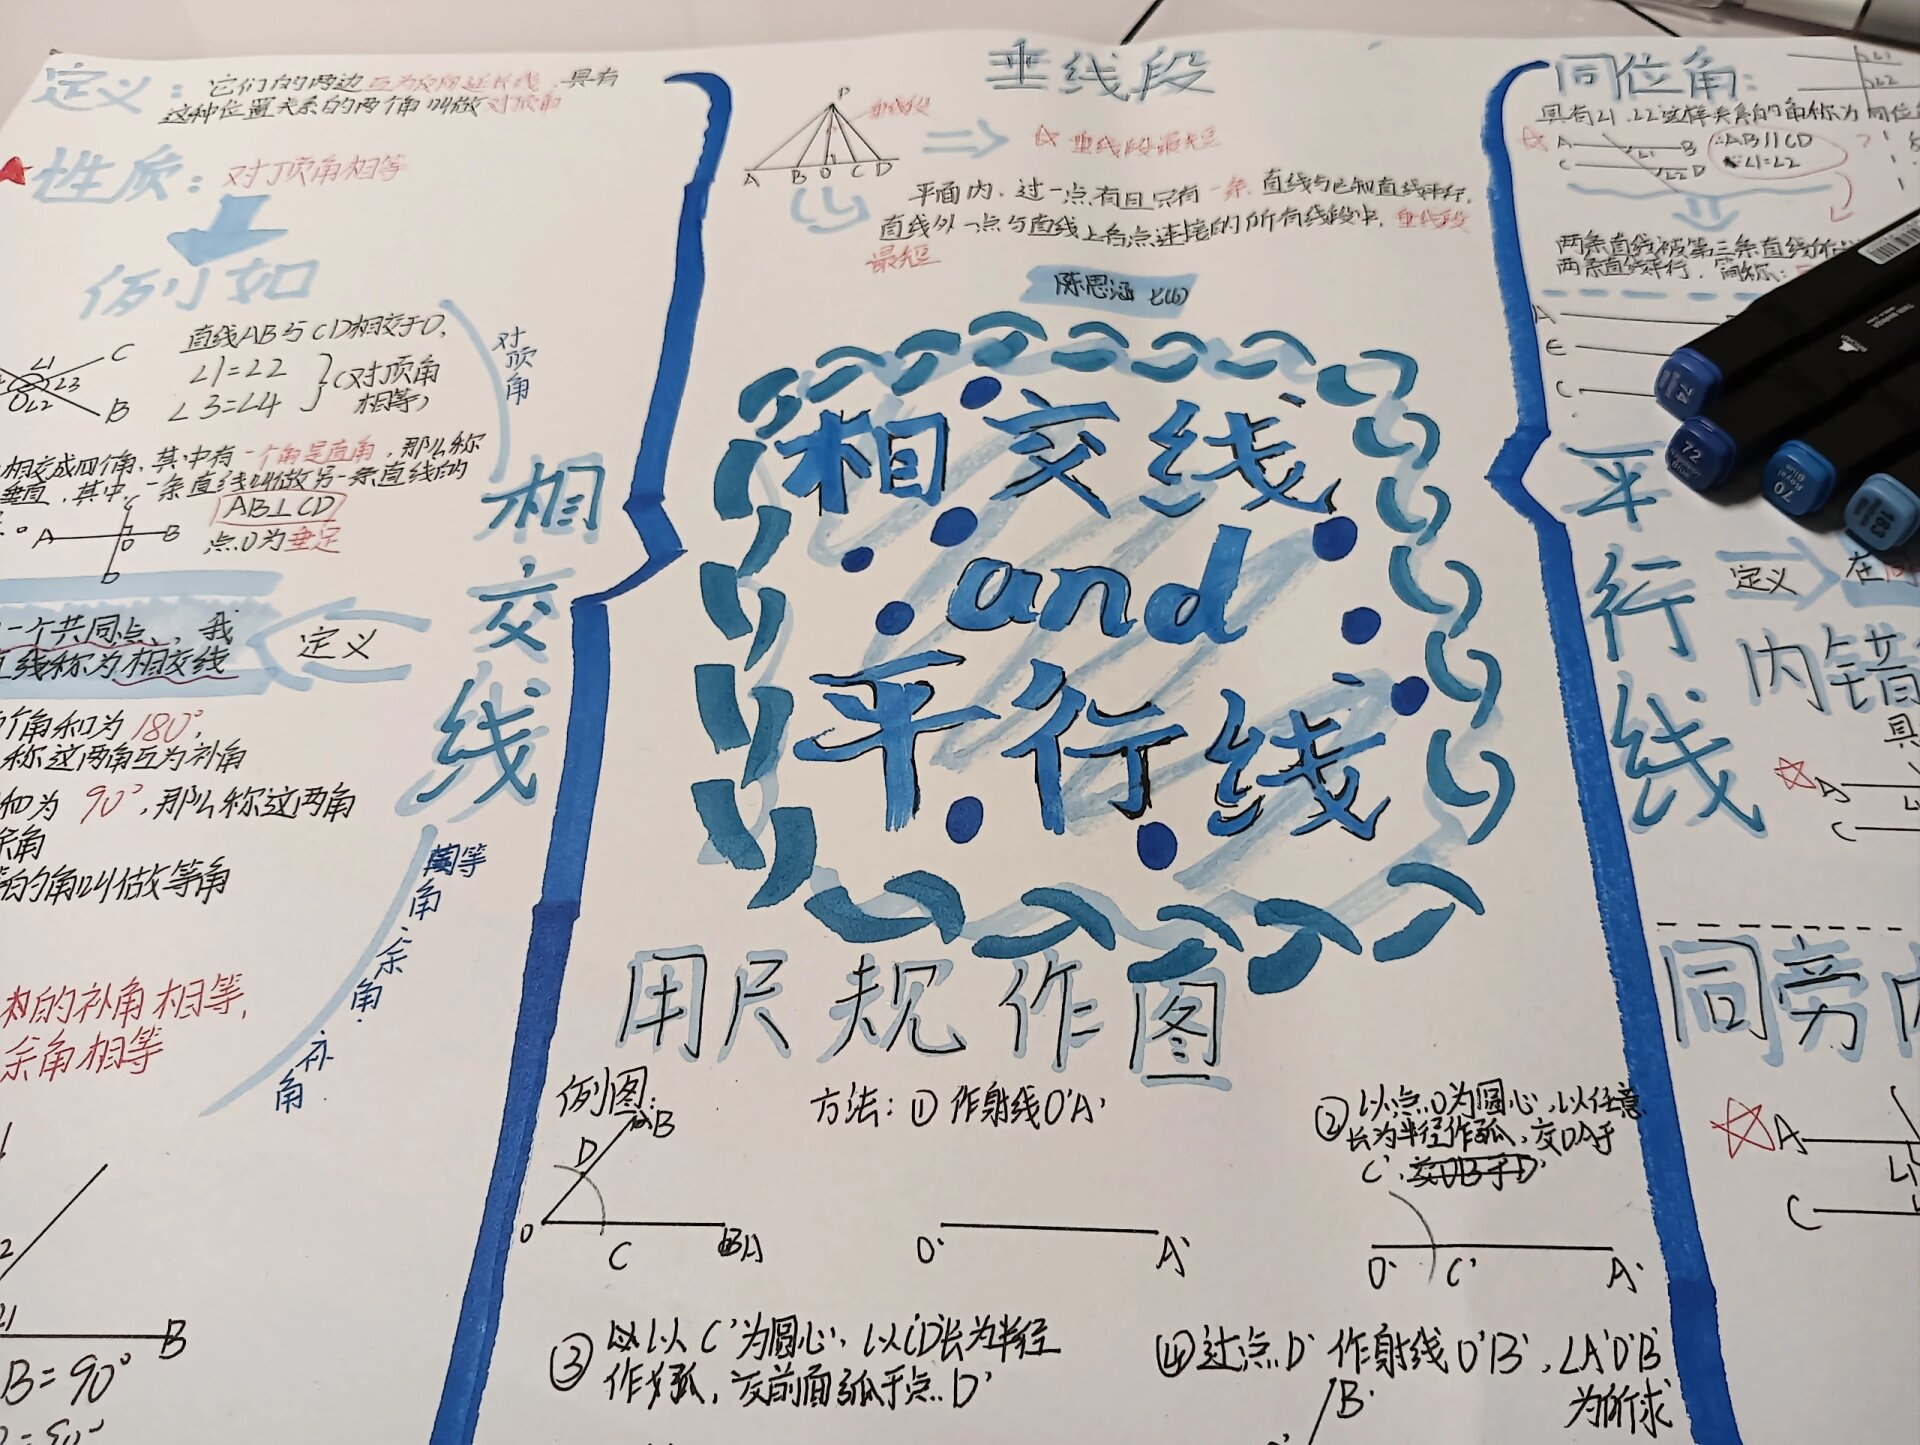 定义：它们的两边互为反向延长线，具有
这种位置关系的两个角叫做对顶角
性质：对顶角相等
例如
直线AB与CD相交于O，
∠1=∠2
∠3=∠4
(对顶角
相等)
∠1
C
∠3
O∠2
B
对顶角
相交成四个角，其中有一个角是直角，那么称
垂直，其中一条直线叫做另一条直线的
AB⊥CD
点O为垂足
A
C
O
B
D
相交线
定义
一个共同点，我
直线称为相交线
个角和为180°，
称这两角互为补角
和为90°，那么称这两角
余角
的角叫做等角
等角·余角·补角
的补角相等，
余角相等
B
B=90°
垂线段
P
垂线段
A B O C D
☆垂线段最短
平面内，过一点有且只有一条直线与已知直线平行，
直线外一点与直线上各点连接的所有线段中，垂线段
最短
陈思涵 七(6)
相交线
and
平行线
用尺规作图
例图：
B
D
O
C
A
方法：① 作射线O'A'
O'
A'
②以点O为圆心，以任意
长为半径作弧，交OA于
C'，交OB于D'
O'
C'
A'
③以C'为圆心，以CD长为半径
作弧，交前面弧于点D'
④过点D'作射线O'B'，∠A'O'B'
为所求
B'
同位角：
∠1
∠2
具有∠1、∠2这样关系的角称为同位
A
B
∠1
C
∠2D
∵AB∥CD
∠1=∠2
两条直线被第三条直线所
两条直线平行，简称：
A
E
C
平行线
定义
在
内错
具
A
C
同旁内
A
∠1
C
74
72
70
Royal Blue
183